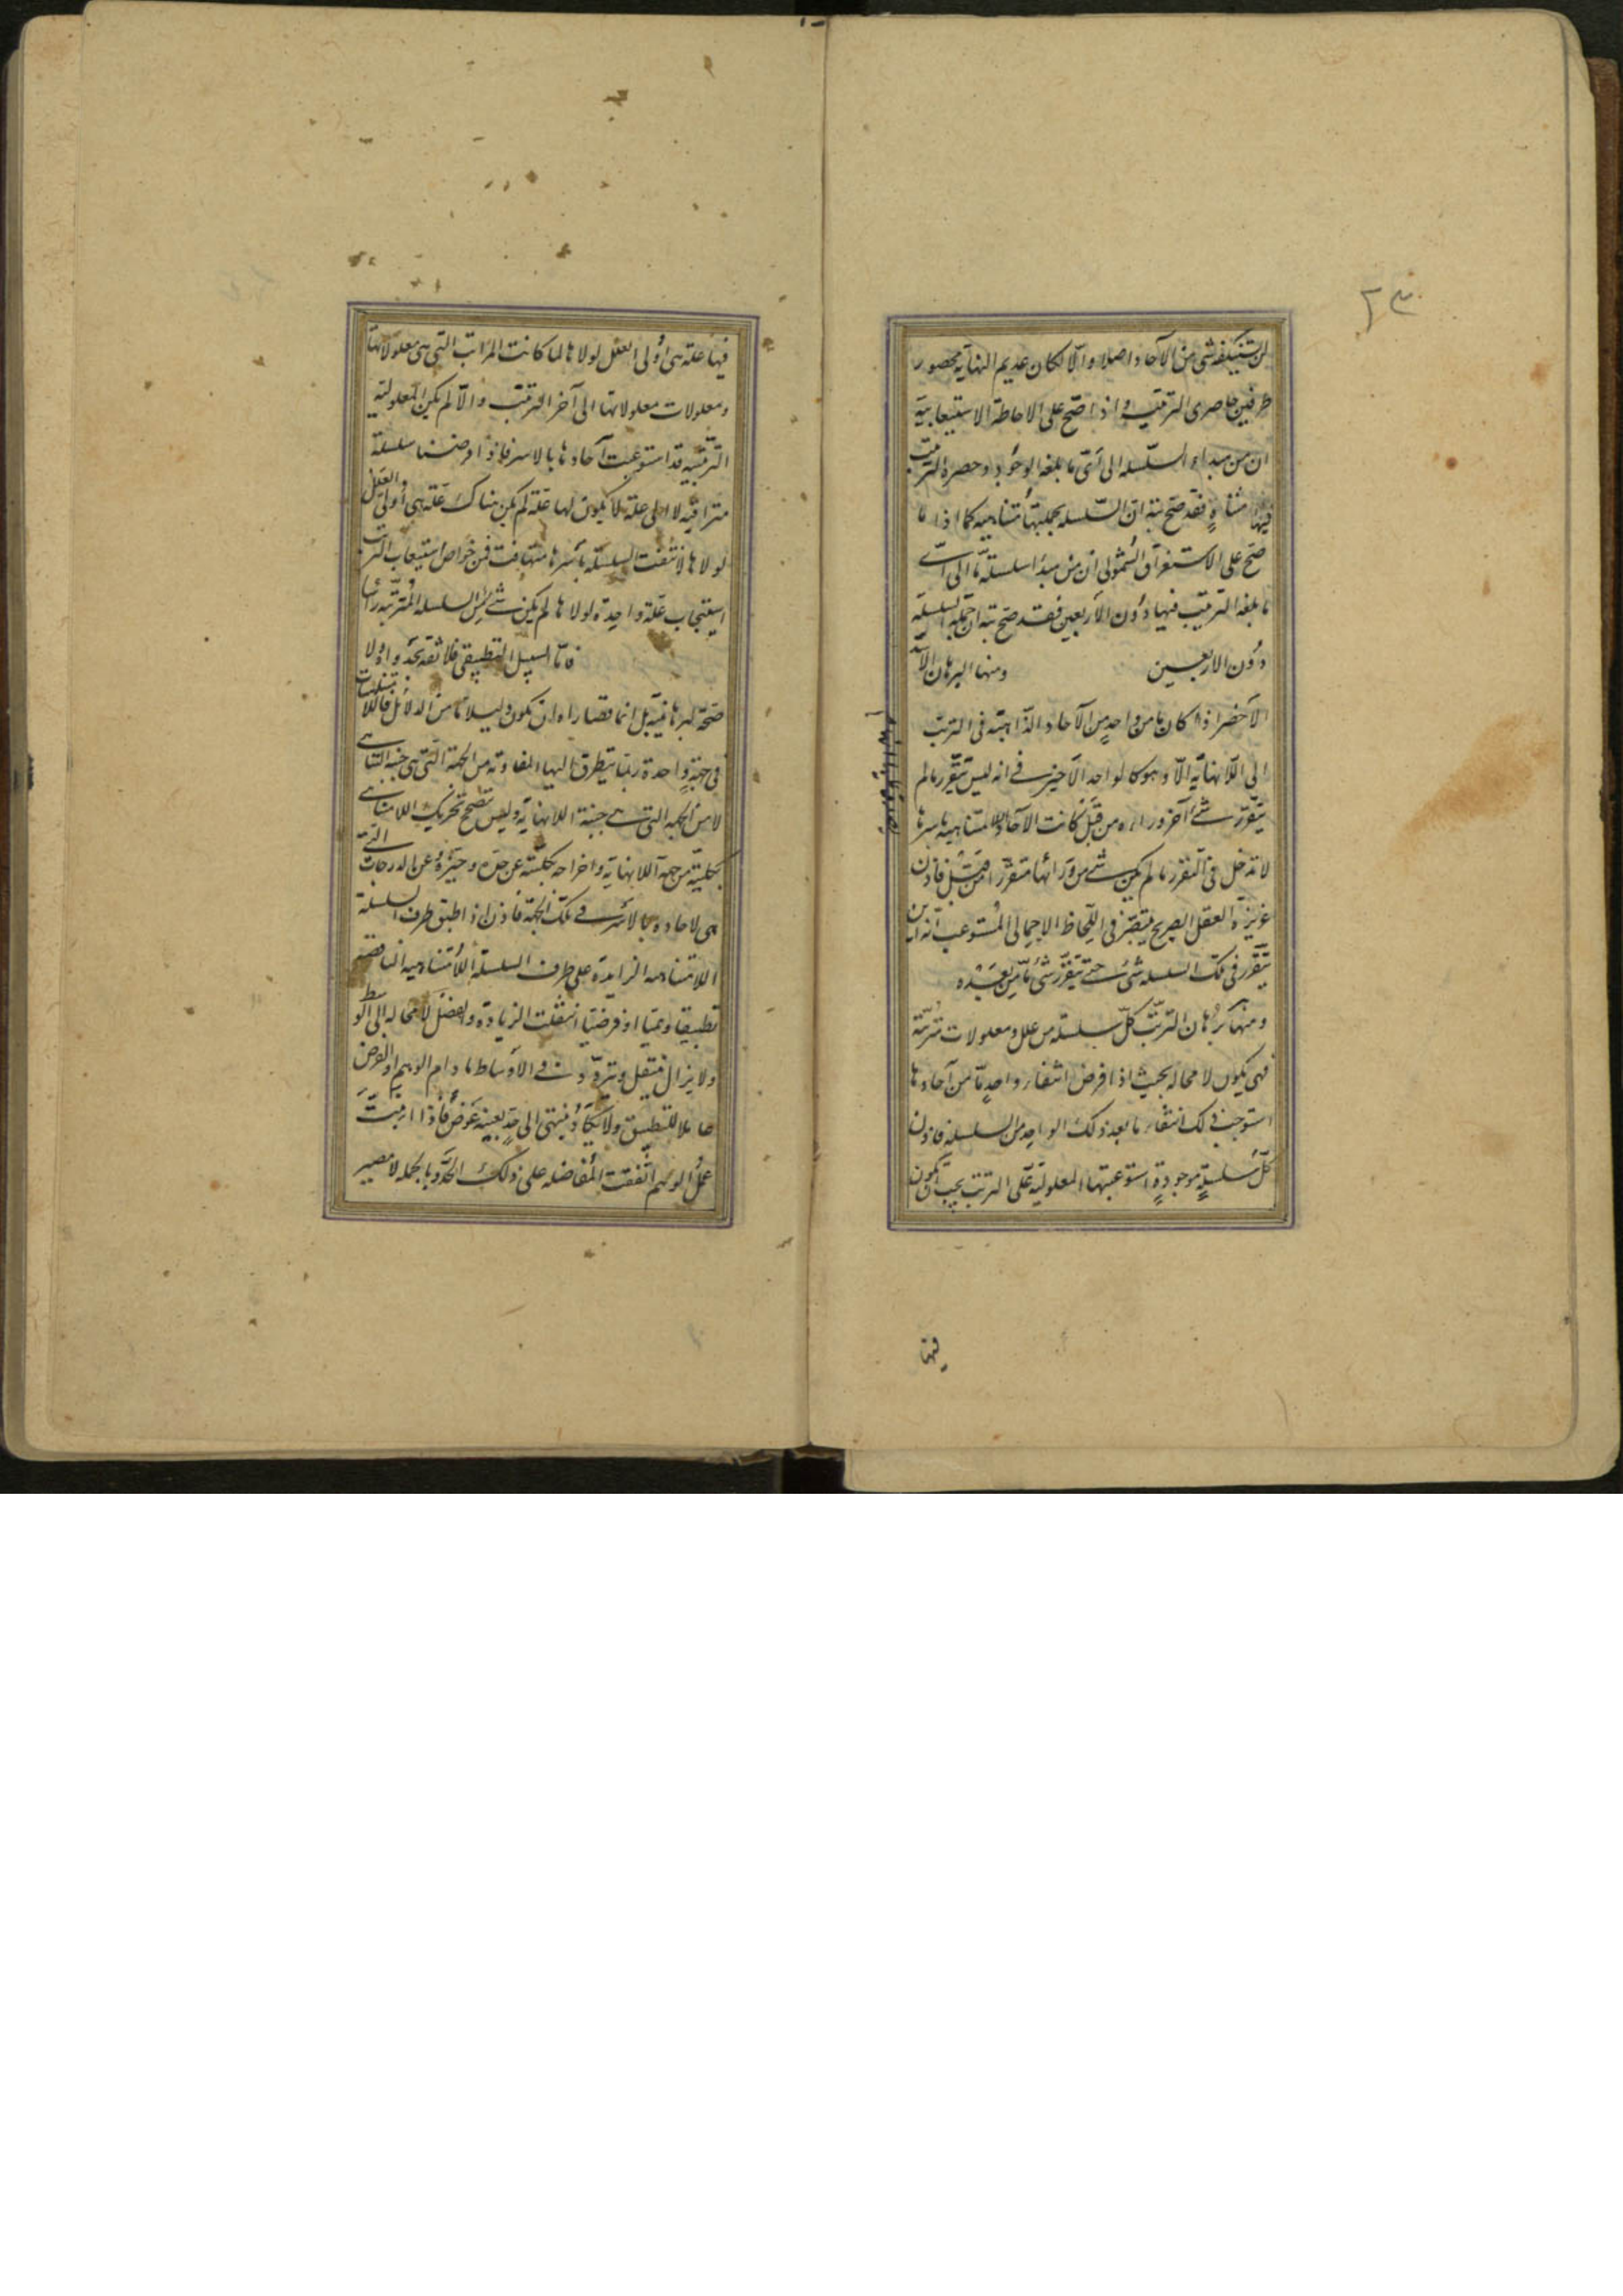 لن يستنكفه شئ من الآحاد اصلا والّا لكان عديم النهاية محصور
طرفين حاصرى الترتيب واذا صحّ على الاحاطة الاستيعابية
ان من مبداء السّلسله الى أىّ ما بلغه الوجود وحصره الترتب
فيها متناهٍ فقد صحّ بتة انّ السّلسله بجملتها متناهيه كما اذا ما
صحّ على الاستغراق الشمولى ان من مبدا سلسلة مّا الى اىّ
ما بلغه الترتيب فيها دون الأربعين فقد صحّ بتة ان جملة السلسلة
دون الاربعين ومنها البرهان الاسدّ
الاخصر اذا كان ما من واحدٍ من الآحاد الذّاهبة فى الترتب
الى اللّانهاية الّا وهو كالواحد الآخير فے انه ليس يتقرّر ما لم
يتقرّر شئ آخر وراءه من قبل كانت الآحاد اللامتناهيه باسرها
لا تدخل فى التقرر ما لم يكن شئ من ورائها متقررا من قبل فاذن
غريزة العقل الصريح فى اللّحاظ الاجمالى المستوعب انّه من اين
يتقرّر فى تلك السلسله شئ حتے يتقرّر شئ مّا من بعده
ومنها برهان الترتّب كلّ سلسلة من علل ومعلولات مترتّبة
فهى يكون لا محاله بحيث اذا فرض انتفاء واحدٍ مّا من آحادها
استوجب ذلك انتفاء ما بعد ذلك الواحد من السلسله فاذن
كلّ سلسلةٍ موجودةٍ استوعبتها المعلولية على الترتب يجب ان يكون
فيها
فيها علة هى أولى العلل لولاها لما كانت المراتب التى هى معلولاتها
ومعلولات معلولاتها الى آخر الترتب والّا لم يكن المعلولية
الترتبيه قد استوعبت آحادها بالاسر فاذا فرضنا سلسلة
متراقيه لا الى علة لا يكون لها علة لم يكن هناك علة هى أولى العلل
لولاها لانتفت السلسلة بأسرها فمن خواص استيعاب الترتب
استيجاب علّة واحدة لولاها لم يكن شئ من السلسله المترتبه رأسا
فامّا السبيل التطبيقى فلا ثقة بجدواه ولا
صحّة لبرهانيته بل انما قصاراه ان يكون دليلا مّا من الدلائل فاللا
فى جهةٍ واحدة ربّما يتطرق اليها المفاوته من الجهة التى هى جنبة التناهى
لا من الجهة التى هے جنبة اللانهاية وليس يتصحّح تحريك اللامتناهى
بكليّته من جهة اللانهاية واخراجه بكليّته عن حدّه وحيّزه وعن الدرجات التى
هى لآحاده بالأسر فے تلك الجهة فاذن اذا طبق طرف السلسلة
اللامتناهيه الزايدة على طرف السلسلة اللامتناهيه الناقصة
تطبيقا وهميّا او فرضيّا انتقلت الزيادة والفضل لا محاله الى الوسط
ولا يزال ينتقل ويتردّد فے الاوساط ما دام الوهم او الفرض
عاملا للتطبيق ولا يكاد ينتهى الى حدّ بعينه فاذا انبتّ
عمل الوهم اتّفقت المفاضله على ذلك الحدّ وبالجمله لا مصير